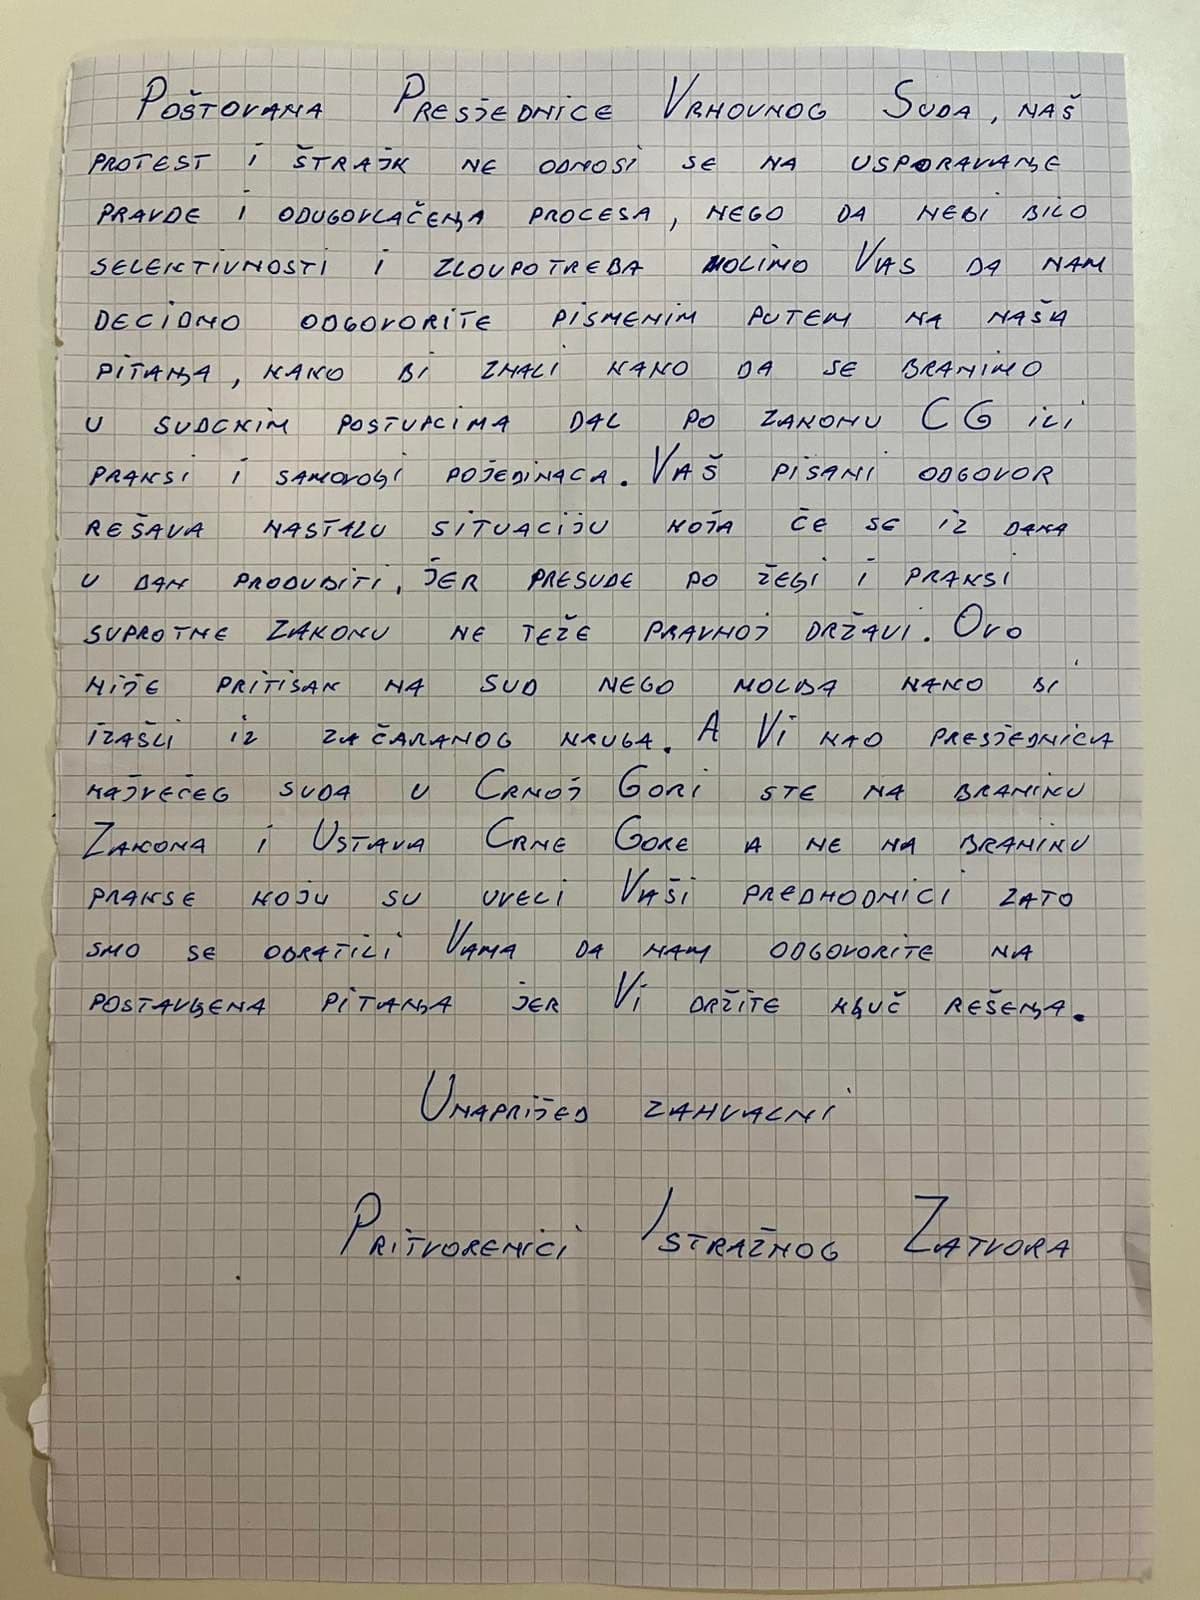 Poštovana Presjednice Vrhovnog Suda, naš
protest i štrajk ne odnosi se na usporavanje
pravde i odugovlačenja procesa, nego da nebi bilo
selektivnosti i zloupotreba molimo Vas da nam
decidno odgovorite pismenim putem na naša
pitanja, kako bi znali kako da se branimo
u sudckim postupcima dal po zakonu CG ili
praksi i samovolji pojedinaca. Vaš pisani odgovor
rešava nastalu situaciju koja će se iz dana
u dan produbiti, jer presude po želji i praksi
suprotne zakonu ne teže pravnoj državi. Ovo
nije pritisak na sud nego molba kako bi
izašli iz začaranog kruga. A Vi kao presjednica
najvećeg suda u Crnoj Gori ste na braniku
Zakona i Ustava Crne Gore a ne na braniku
prakse koju su uveli Vaši predhodnici zato
smo se obratili Vama da nam odgovorite na
postavljena pitanja jer Vi držite ključ rešenja.
Unaprijed zahvalni
Pritvorenici Istražnog Zatvora